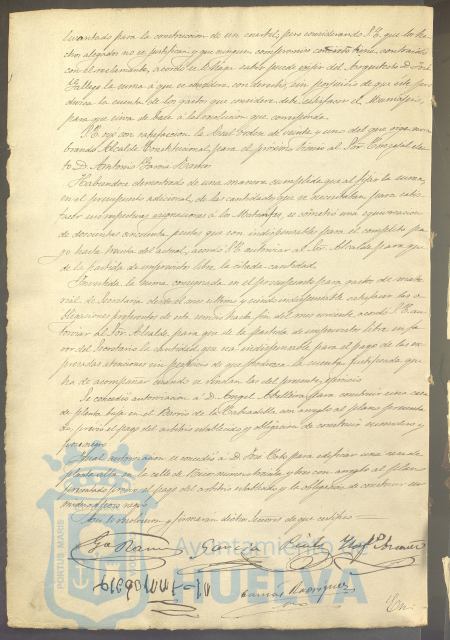 levantado para la construccion de un cuartel, pero considerando S.E. que los he-
chos alegados no se justifican y que ningun compromiso tiene contraido
con el reclamante, acordó se le haga saber puede exigir del Arquitecto D. José
Gallego la suma a que se considere con derecho, sin perjuicio de que este pro-
duzca la cuenta de los gastos que considere debe satisfacer el Municipio,
para que sirva de base á la resolucion que corresponda.
S.E. oyó con satisfaccion la Real orden de veinte y uno del que rige nom-
brando Alcalde Constitucional para el próximo bienio al Sor. Concejal elec-
to D. Antonio Garcia Ramos
Habiendose demostrado de una manera cumplida que al fijar la suma,
en el presupuesto adicional, de las cantidades que se necesitaban para satis-
facer sus respectivas asignaciones á los Matronas, se cometió una equivocacion
de doscientas cincuenta pesetas que son indispensables para el completo pa-
go hasta treinta del actual, acordó S.E. autorizar al Sr. Alcalde para que
de la partida de imprevistos libre la citada cantidad.
Invertida la suma consignada en el presupuesto para gastos de mate-
rial de Secretaria desde el mes último y siendo indispensable satisfacer las o-
bligaciones preferentes de esta hasta fin del mes corriente acordó S.E. au-
torizar al Sor. Alcalde para que de la partida de imprevistos libre en fa-
vor del Secretario la cantidad que sea indispensable para el pago de las ex-
presadas atenciones sin perjuicio de que produzca la cuenta justificada que
ha de acompañar cuando se rindan las del presente ejercicio
Se concedió autorizacion á D. Angel Abelleira para construir una casa
de planta baja en el Barrio de la con arreglo al plano presenta-
do, previo el pago del arbitrio establecido y obligacion de construir sumidero y
pozo negro
Igual autorizacion se concedió á D. José Coto para edificar una casa de
planta alta en la calle de Rico numero treinta y tres con arreglo al plano
presentado previo el pago del arbitrio establecido y la obligacion de construir su-
midero y pozo negro
Asi se resolvieron y firmaron dichos Señores de que certifico
Ga Ramos Garcia
Ramos Rodriguez
En
PORTUS MARIS
Ayuntamiento
HUELVA